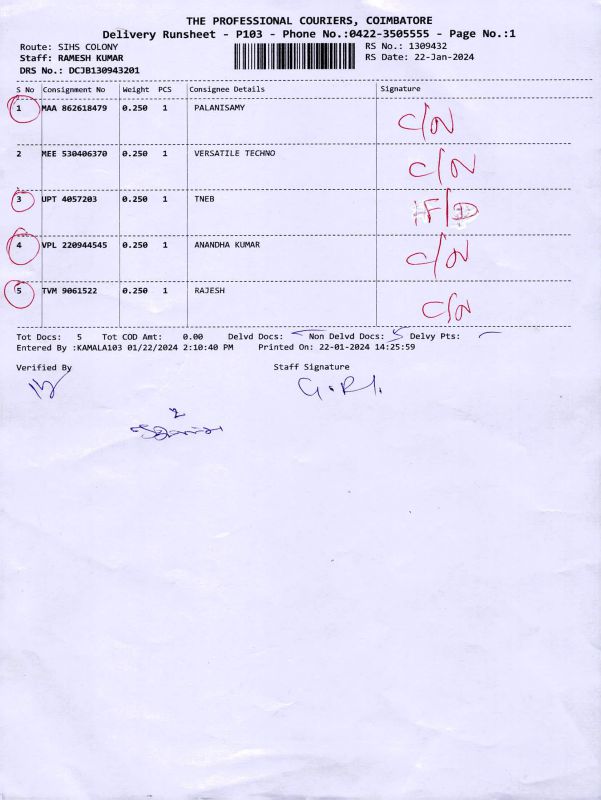 THE PROFESSIONAL COURIERS, COIMBATORE
Delivery Runsheet - P103 - Phone No.:0422-3505555 - Page No.:1
Route: SIHS COLONY RS No.: 1309432
Staff: RAMESH KUMAR RS Date: 22-Jan-2024
DRS No.: DCJB130943201
S No Consignment No Weight PCS Consignee Details Signature
1 MAA 862618479 0.250 1 PALANISAMY C/N
2 MEE 530406370 0.250 1 VERSATILE TECHNO C/N
3 UPT 4057203 0.250 1 TNEB
4 VPL 220944545 0.250 1 ANANDHA KUMAR C/N
5 TVM 9061522 0.250 1 RAJESH C/N
Tot Docs: 5 Tot COD Amt: 0.00 Delvd Docs: Non Delvd Docs: 5 Delvy Pts:
Entered By :KAMALA103 01/22/2024 2:10:40 PM Printed On: 22-01-2024 14:25:59
Verified By Staff Signature